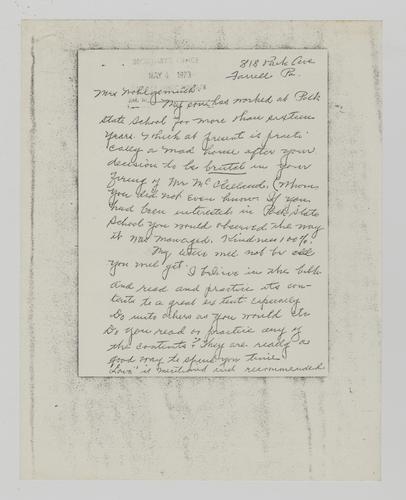 818 Park Ave
Farrell Pa.
MAY 4 1973
Mrs Wohlgemuth
My son has worked at Polk
state School for more than sixteen
years. Which at present is practi-
cally a mad house after your
decision to be brutal in your
firing of Mr McClelland. (Whom
you did not even know if you
had been interested in Polk State
School you would observed the way
it was managed. Kindness 100%.
My will not be all
you will get. I believe in the bible
and read and practice its con-
tents to a great extent especially
Do unto others as you would etc
Do you read or practice any of
the contents? They are really a
good way to spend you time
"Love" is mentioned and recommended